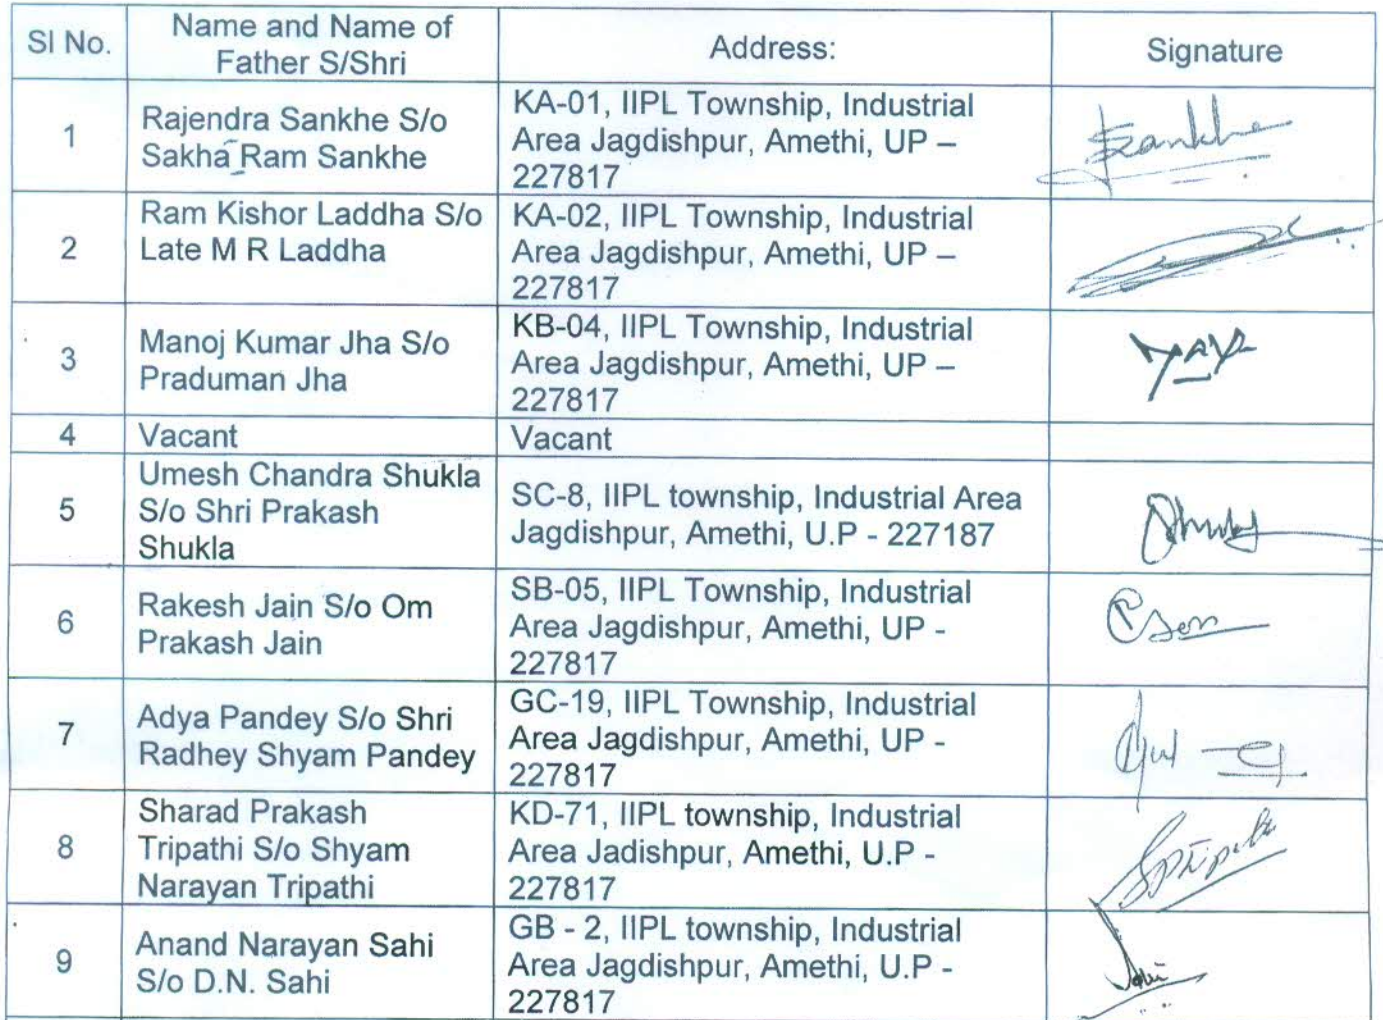 SI No.
Name and Name of
Father S/Shri
Address:
Signature
1
Rajendra Sankhe S/o
Sakha Ram Sankhe
KA-01, IIPL Township, Industrial
Area Jagdishpur, Amethi, UP –
227817
Sankhe
2
Ram Kishor Laddha S/o
Late M R Laddha
KA-02, IIPL Township, Industrial
Area Jagdishpur, Amethi, UP –
227817
3
Manoj Kumar Jha S/o
Praduman Jha
KB-04, IIPL Township, Industrial
Area Jagdishpur, Amethi, UP –
227817
4
Vacant
Vacant
5
Umesh Chandra Shukla
S/o Shri Prakash
Shukla
SC-8, IIPL township, Industrial Area
Jagdishpur, Amethi, U.P - 227187
6
Rakesh Jain S/o Om
Prakash Jain
SB-05, IIPL Township, Industrial
Area Jagdishpur, Amethi, UP -
227817
7
Adya Pandey S/o Shri
Radhey Shyam Pandey
GC-19, IIPL Township, Industrial
Area Jagdishpur, Amethi, UP -
227817
8
Sharad Prakash
Tripathi S/o Shyam
Narayan Tripathi
KD-71, IIPL township, Industrial
Area Jadishpur, Amethi, U.P -
227817
9
Anand Narayan Sahi
S/o D.N. Sahi
GB - 2, IIPL township, Industrial
Area Jagdishpur, Amethi, U.P -
227817